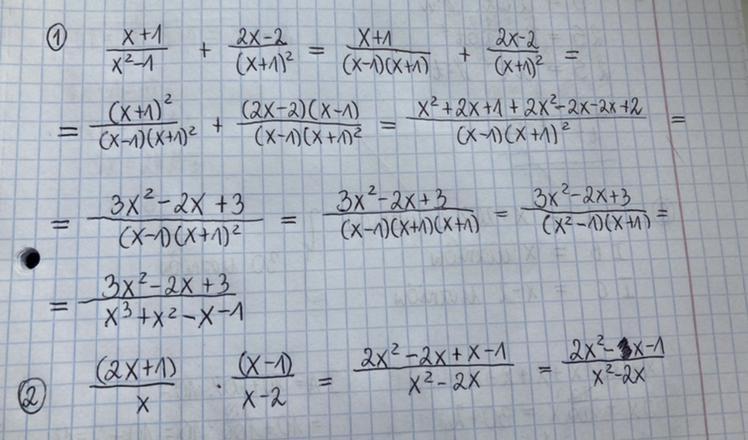 ① (x+1)/(x²-1) + (2x-2)/(x+1)² = (x+1)/((x-1)(x+1)) + (2x-2)/(x+1)² =
= (x+1)²/((x-1)(x+1)²) + ((2x-2)(x-1))/((x-1)(x+1)²) = (x²+2x+1+2x²-2x-2x+2)/((x-1)(x+1)²) =
= (3x²-2x+3)/((x-1)(x+1)²) = (3x²-2x+3)/((x-1)(x+1)(x+1)) = (3x²-2x+3)/((x²-1)(x+1)) =
= (3x²-2x+3)/(x³+x²-x-1)
② (2x+1)/x · (x-1)/(x-2) = (2x²-2x+x-1)/(x²-2x) = (2x²-x-1)/(x²-2x)